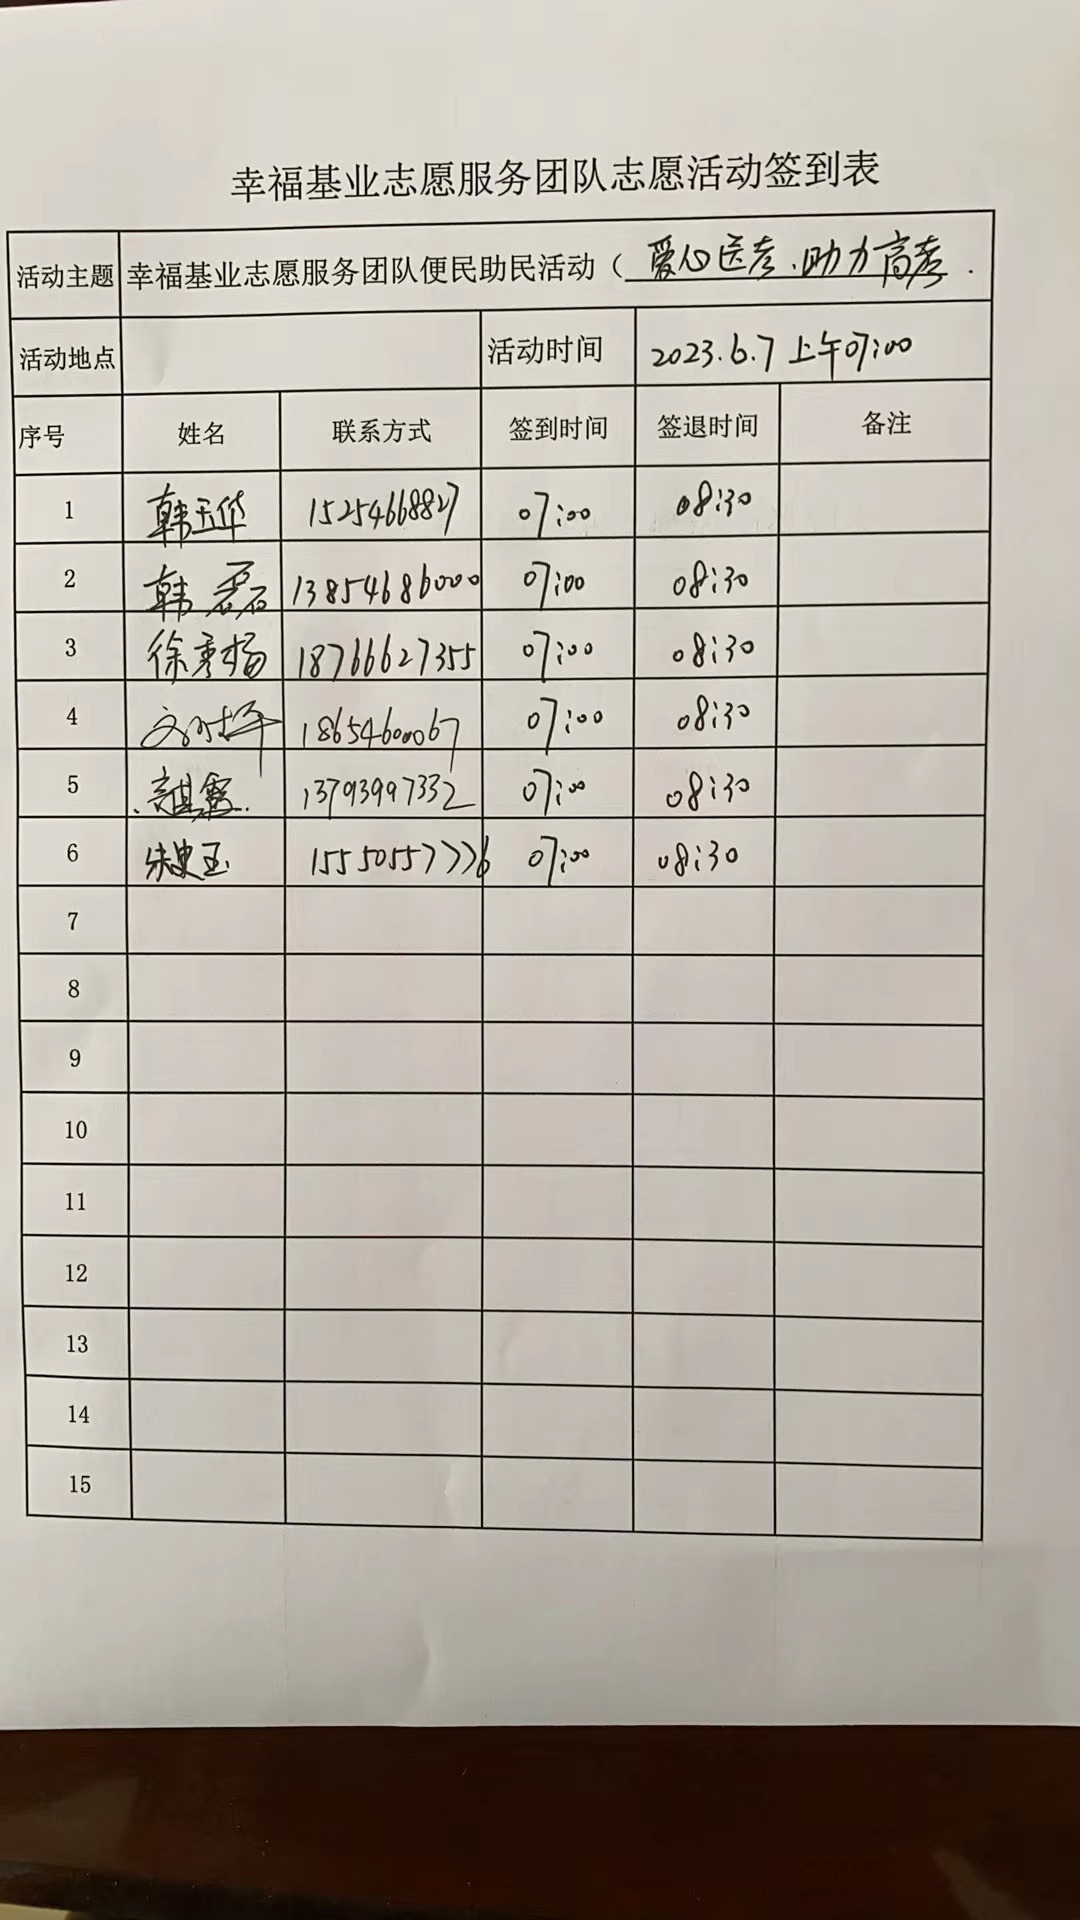 幸福基业志愿服务团队志愿活动签到表
活动主题 幸福基业志愿服务团队便民助民活动（爱心送考、助力高考.
活动地点 活动时间 2023.6.7 上午07:00
序号 姓名 联系方式 签到时间 签退时间 备注
1 韩玉华 15254668827 07:00 08:30
2 韩磊 13854686000 07:00 08:30
3 徐秀杨 18766627355 07:00 08:30
4 18654600067 07:00 08:30
5 13793997332 07:00 08:30
6 15550557776 07:00 08:30
7
8
9
10
11
12
13
14
15